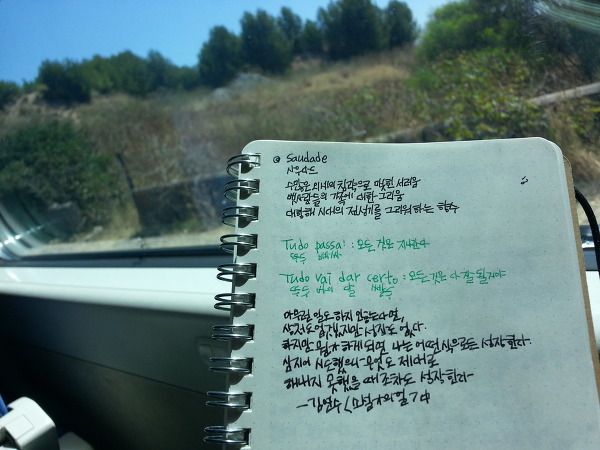 Saudade
사우다드
수많은 외세의 침략으로 맺힌 서러움
뱃사람들의 대한 그리움
대항해 시대의 전성기를 그리워하는 향수
Tudo passa! : 모든 것은 지나간다
뚜두 빠싸
Tudo vai dar certo : 모든 것은 다 잘 될거야
뚜두 바이 달
아무런 일도 하지 않는다면,
상처도 없겠지만 성장도 없다.
하지만 뭔가 하게 되면 나는 어떤 식으로든 성장한다.
심지어 시도했으나 무엇도 제대로
해내지 못했을 때조차도 성장한다
-김연수 <소설가의 일> 中